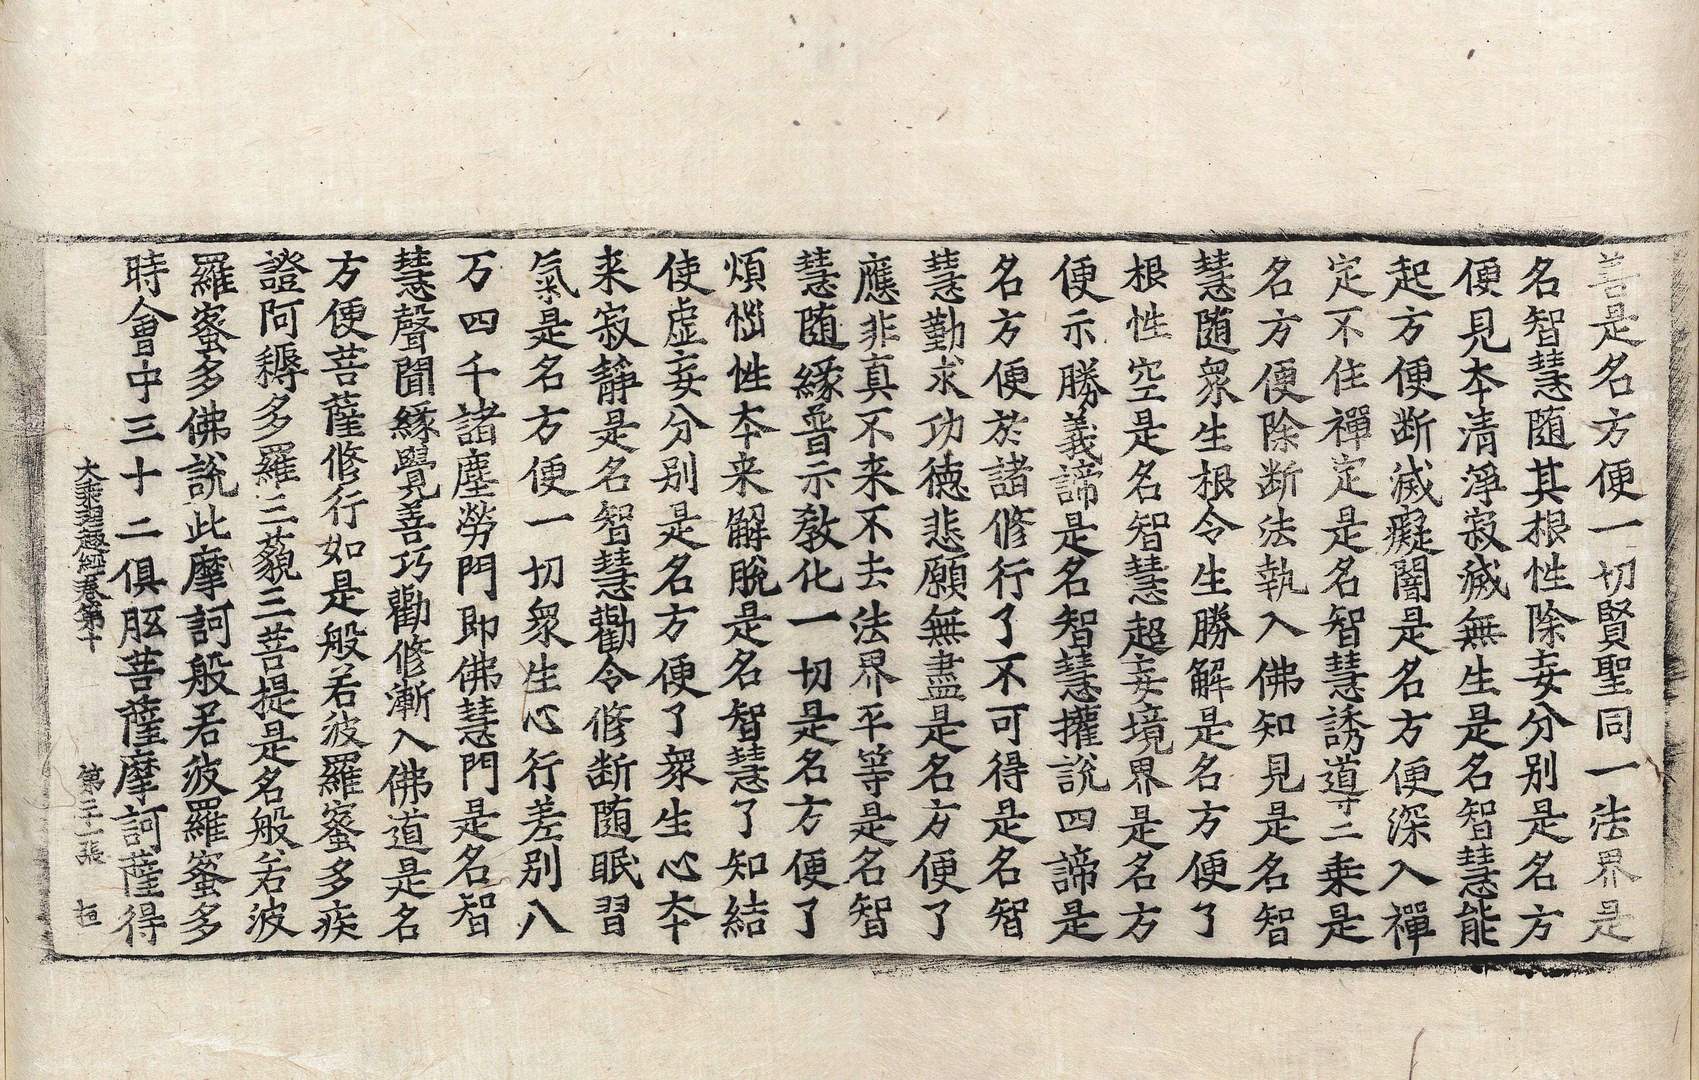 善是名方便一切賢聖同一法界是
名智慧随其根性除妄分別是名方
便見本清淨寂滅無生是名智慧能
起方便断滅癡闇是名方便深入禪
定不住禪定是名智慧誘導二乗是
名方便除断法執入佛知見是名智
慧随衆生根令生勝解是名方便了
根性空是名智慧超妄境界是名方
便示勝義諦是名智慧攉說四諦是
名方便於諸修行了不可得是名智
慧勤求功德悲願無盡是名方便了
應非真不来不去法界平等是名智
慧随緣普示教化一切是名方便了
煩惱性本来解脫是名智慧了知結
使虛妄分別是名方便了衆生心本
来寂靜是名智慧勸令修断随眠習
氣是名方便一切衆生心行差別八
万四千諸塵勞門即佛慧門是名智
慧聲聞緣覺善巧勸修漸入佛道是名
方便菩薩修行如是般若波羅蜜多疾
證阿耨多羅三藐三菩提是名般若波
羅蜜多佛說此摩訶般若波羅蜜多
時會中三十二俱胝菩薩摩訶薩得
大乘理趣經卷第十 第二十一張 垣